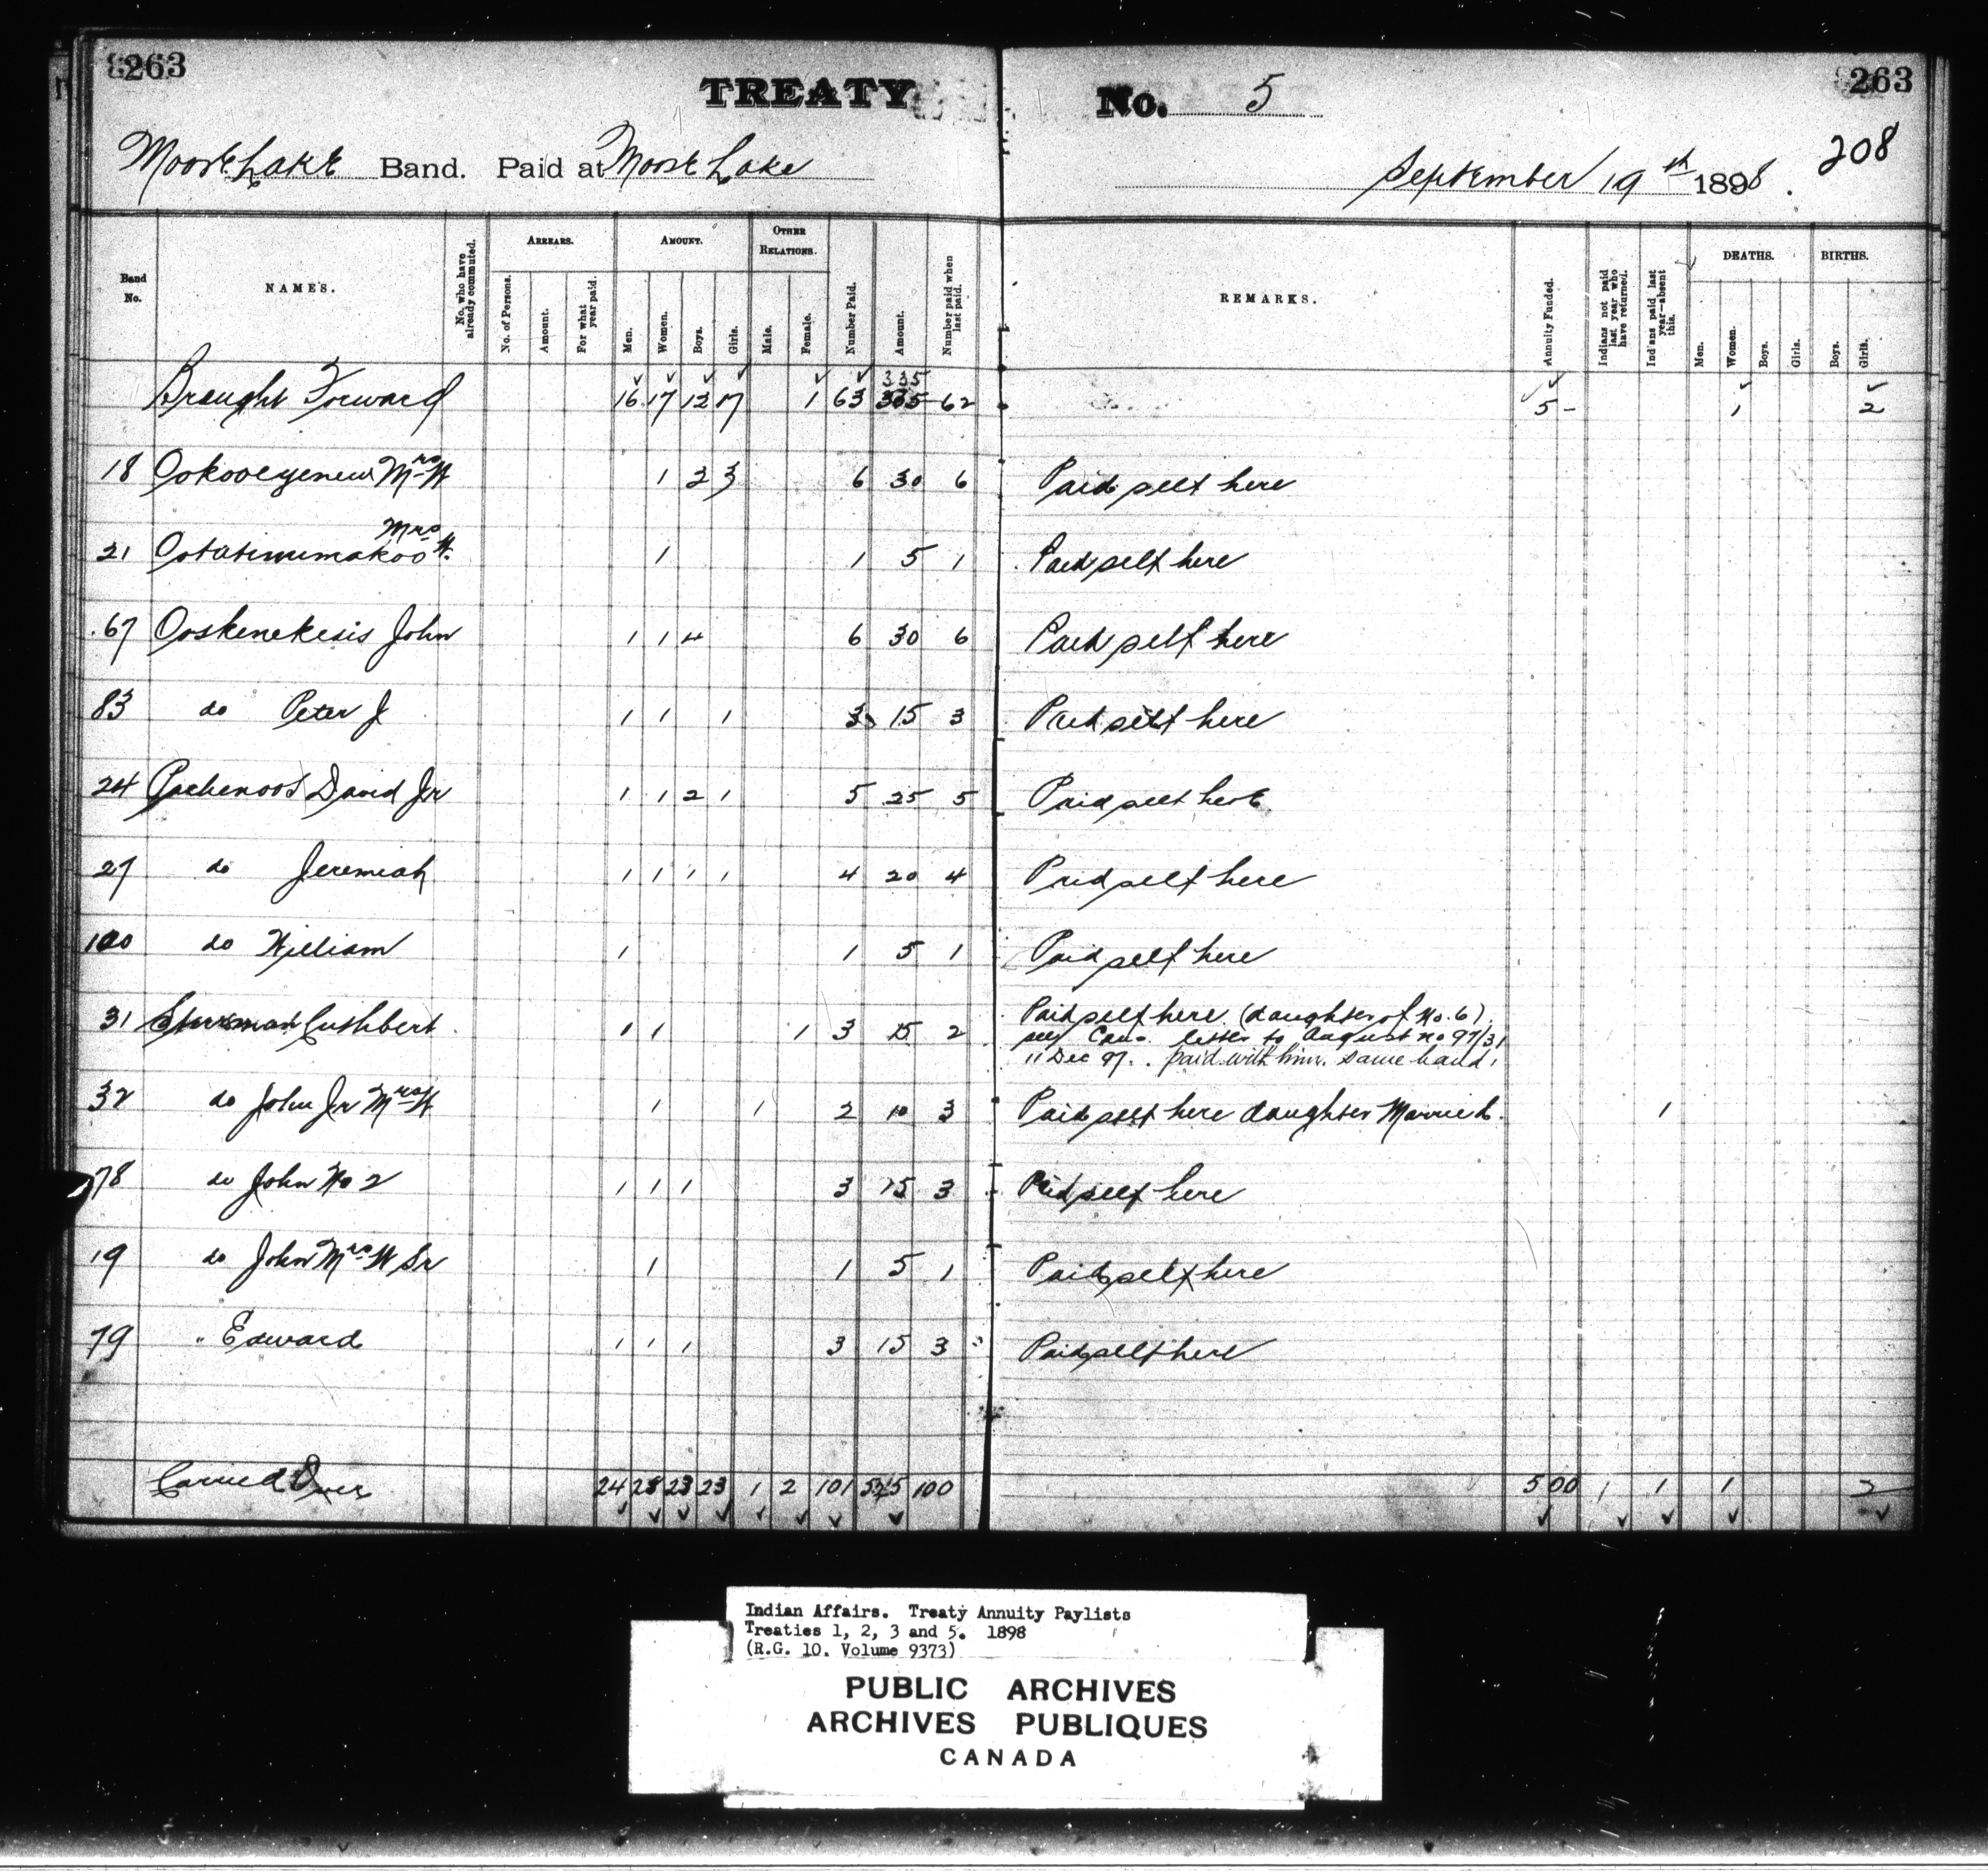 263 263
TREATY No. 5
208
Moose Lake Band. Paid at Moose Lake September 19th 1898.
Band No. NAMES. No. who have already commuted. ARREARS. No. of Persons. Amount. For what year paid. AMOUNT. Men. Women. Boys. Girls. OTHER RELATIONS. Male. Female. Number Paid. Amount. Number paid when last paid. REMARKS. Annuity Funded. Indians not paid last year who have returned. Indians paid last year—absent this. DEATHS. Men. Women. Boys. Girls. BIRTHS. Boys. Girls.
335
Brought Forward 16 17 12 17 1 63 62 5- 1 2
18 Ookooeyenew Mrs W 1 2 3 6 30 6 Paid self here
Mrs
21 W. 1 1 5 1 Paid self here
67 Ooskenekesis John 1 1 4 6 30 6 Paid self here
83 do Peter J 1 1 1 3 15 3 Paid self here
24 Pachenoos David Jr 1 1 2 1 5 25 5 Paid self here
27 do Jeremiah 1 1 1 1 4 20 4 Paid self here
100 do William 1 1 5 1 Paid self here
31 Cuthbert 1 1 1 3 15 2 Paid self here (daughter of No. 6)
letter to August no 97/31
11 Dec 97. paid with him. same band,
32 do John Jr Mrs W 1 1 2 10 3 Paid self here daughter Married. 1
78 do John No 2 1 1 1 3 15 3 Paid self here
19 do John Mrs W Sr 1 1 5 1 Paid self here
79 " Edward 1 1 1 3 15 3 Paid self here
Carried Over 24 23 23 1 2 101 100 5 00 1 1 1 2
Indian Affairs. Treaty Annuity Paylists
Treaties 1, 2, 3 and 5. 1898
(R.G. 10. Volume 9373)
PUBLIC ARCHIVES
ARCHIVES PUBLIQUES
CANADA